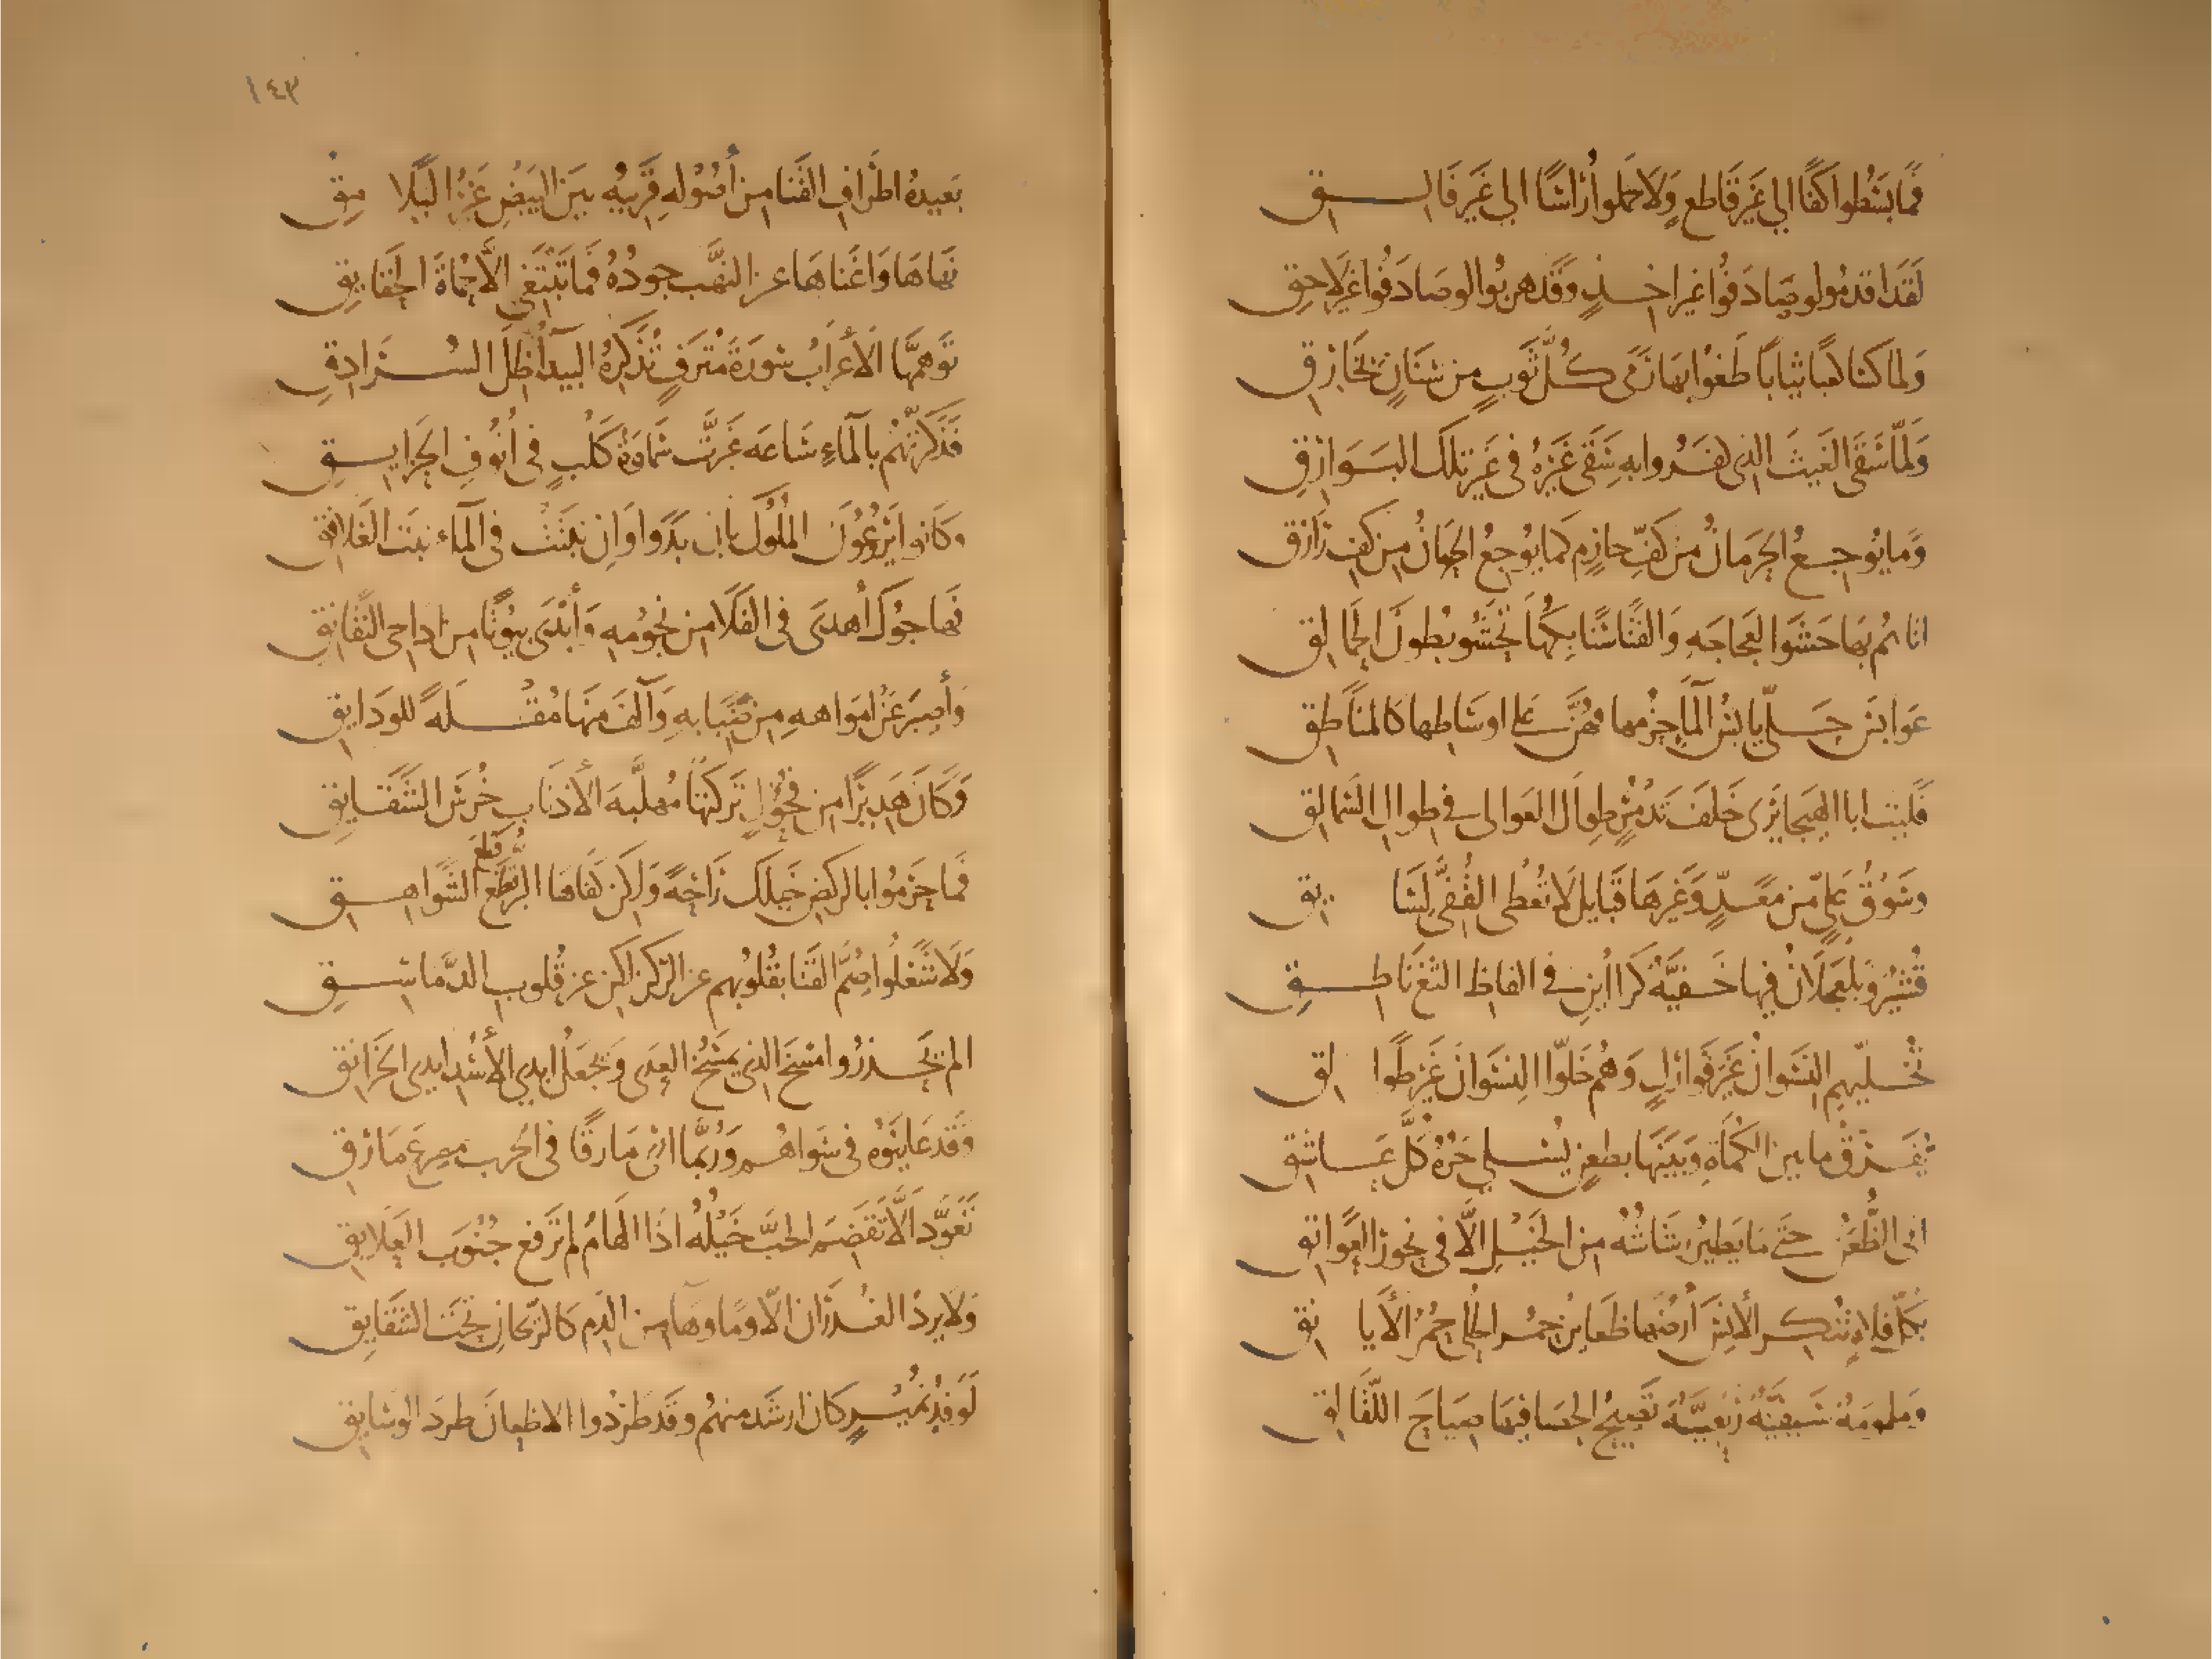 فما بسطوا كفا الى غير قاطع ولا حملوا راسا الى غير فالق
لقد اقدموا لو صادفوا غير اخذ وقد هربوا لو صادفوا غير لاحق
ولما كسا كعبا ثيابا طغوا بها رمى كل ثوب من سنان بخارق
ولما سقى الغيث الذي كفروا به سقى غيره في غير تلك البوارق
وما يوجع الحرمان من كف حازم كما يوجع الحرمان من كف رازق
اتاهم بها حشو العجاجه والقنا سنابكها تحشو بطون الحمالق
عوابس حلى يابس الماء حزمها فهن على اوساطها كالمناطق
فليت ابا الهيجا يرى خلف تدمر طوال العوالى في طوال السمالق
وسوق علي من معد وغيرها قبايل لا تعطي القفي لسايق
قشير وبلعجلان فيها خفية كراأين في الفاظ الثغ ناطق
تخليهم النسوان غير فوارك وهم خلوا النسوان غير طوالق
يفرق ما بين الكماة وبينها بطعن يسلي حره كل عاشق
اتى الظعن حتى ما يطير رشاشه من الخيل الا في نحور العواتق
بكل فلاة تنكر الانس ارضها ظعاين حمر الحلي حمر الايانق
وملمومة سيفية ربعية تصيح الحصا فيها صياح اللقالق
١٤٣
بعيدة اطراف القنا من اصوله قريبة بين البيض غبر اليلامق
نهاها واغناها عن النهب جوده فما تبتغي الا حماة الحقايق
توهمها الاعراب سورة مترف تذكره البيداء ظل السرادق
فذكرتهم بالماء ساعة غبرت سماوة كلب في انوف الحزايق
وكانوا يروعون الملوك بان بدوا وان نبتت في الماء نبت الغلافق
فهاجوك اهدى في الفلا من نجومه وأبدى بيوتا من اداحي النقانق
وأصبر عن امواهه من ضبابه وآلف منها مقلة للودايق
وكان هديرا من فحول تركتها مهلبة الاذناب خرس الشقايق
فما حرموا بالركض خيلك راحة ولكن كفاها البر قطع الشواهق
ولا شغلوا صم القنا بقلوبهم عن الركز لكن عن قلوب الدماسق
الم يحذروا مسخ الذي يمسخ العدى ويجعل ايدي الأسد ايدي الخرانق
وقد عاينوه في سواهم وربما ارى مارقا في الحرب مصرع مارق
تعود ألا تقضم الحب خيله اذا الهام لم ترفع جنوب العلايق
ولا يرد الغدران الا وماوها من الدم كالريحان تحت الشقايق
لوفد نمير كان ارشد منهم وقد طردوا الاظعان طرد الوسايق